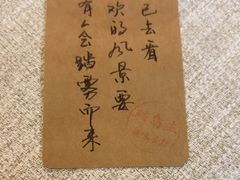 己去看
欢的风景要
有人会踏雾而来